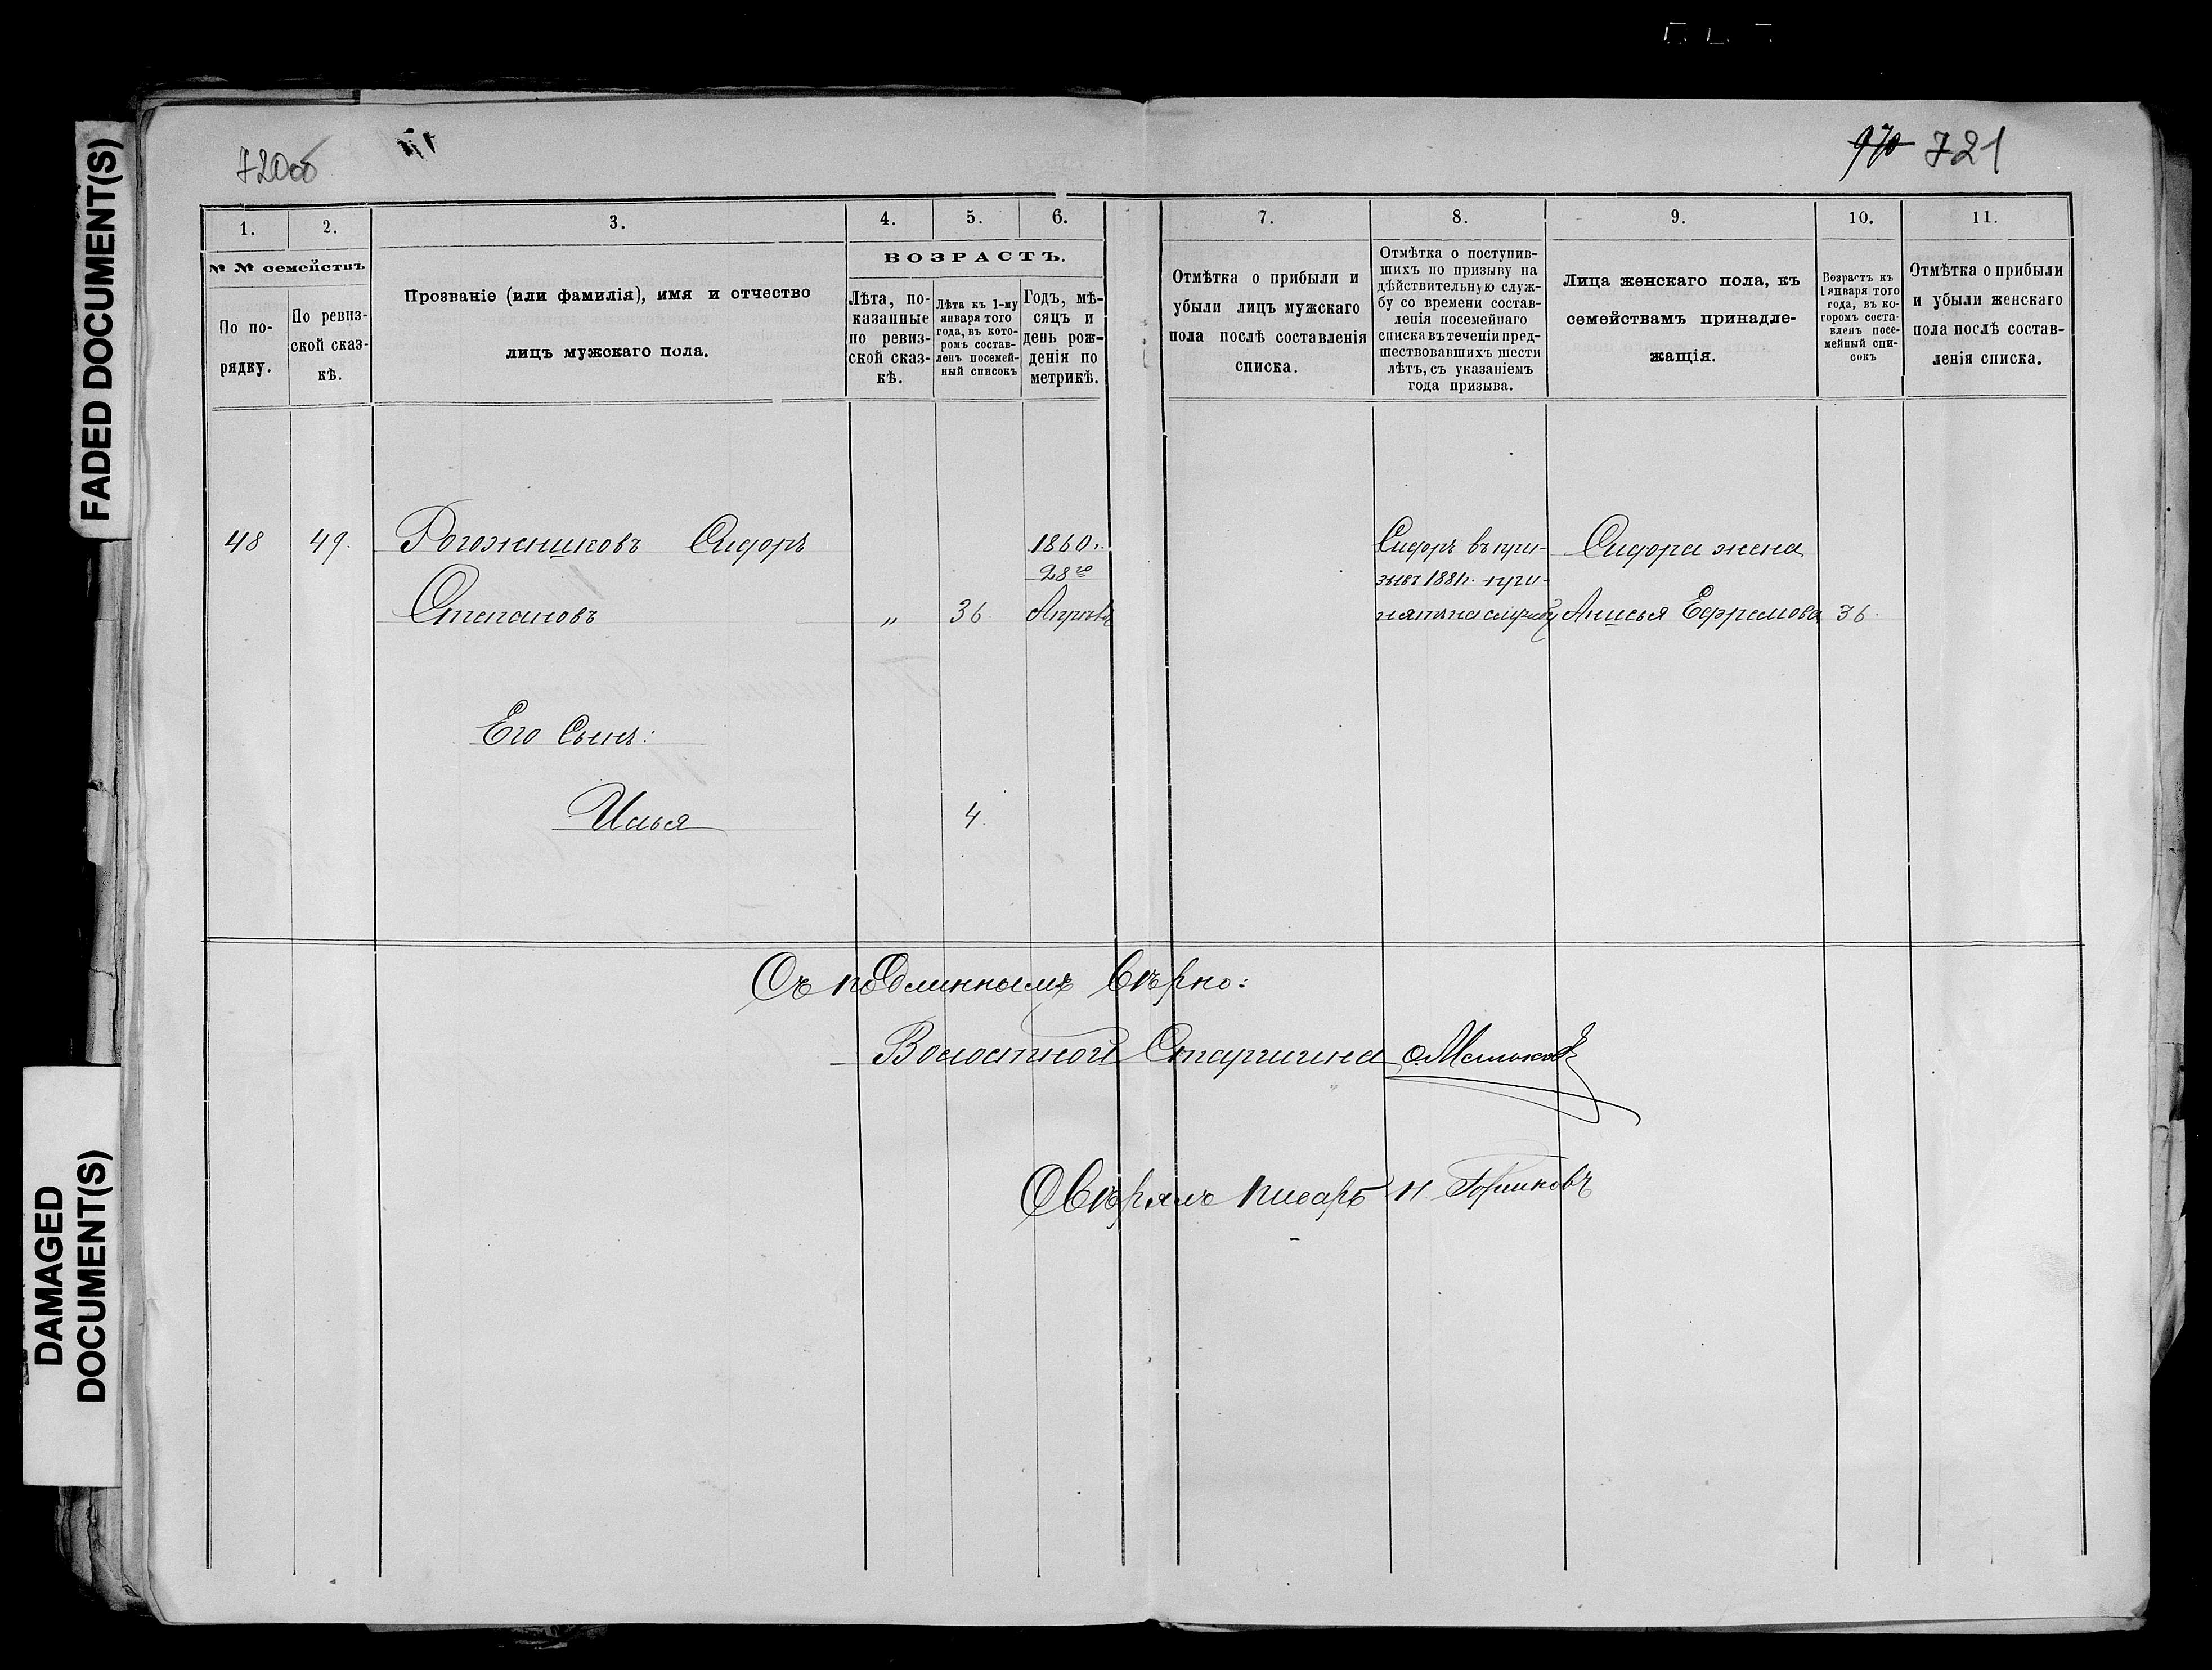 FADED DOCUMENT(S)
DAMAGED
DOCUMENT(S)
720об
970 721
1. 2. 3. 4. 5. 6. 7. 8. 9. 10. 11.
№ № семействъ
По по-
рядку.
По ревиз-
ской сказ-
кѣ.
Прозваніе (или фамилія), имя и отчество
лицъ мужскаго пола.
ВОЗРАСТЪ.
Лѣта, по-
казанные
по ревиз-
ской сказ-
кѣ.
Лѣта къ 1-му
января того
года, въ кото-
ромъ состав-
ленъ посемей-
ный списокъ
Годъ, мѣ-
сяцъ и
день рож-
денія по
метрикѣ.
Отмѣтка о прибыли и
убыли лицъ мужскаго
пола послѣ составленія
списка.
Отмѣтка о поступив-
шихъ по призыву на
дѣйствительную служ-
бу со времени состав-
ленія посемейнаго
списка въ теченіи пред-
шествовавшихъ шести
лѣтъ, съ указаніемъ
года призыва.
Лица женскаго пола, къ
семействамъ принадле-
жащія.
Возрастъ къ
1 января того
года, въ ко-
торомъ соста-
вленъ посе-
мейный спи-
сокъ
Отмѣтка о прибыли
и убыли женскаго
пола послѣ состав-
ленія списка.
48 49. Рогожниковъ Сидоръ 1860г. Сидоръ въ при- Сидора жена
28го зывъ 1881г. при-
Степановъ „ 36. Апрѣля нятъ на службу Анисья Ефремова 36.
Его Сынъ:
Илья 4.
Съ подлиннымъ вѣрно:
Волостной Старшина
Свѣрялъ писарь Н.